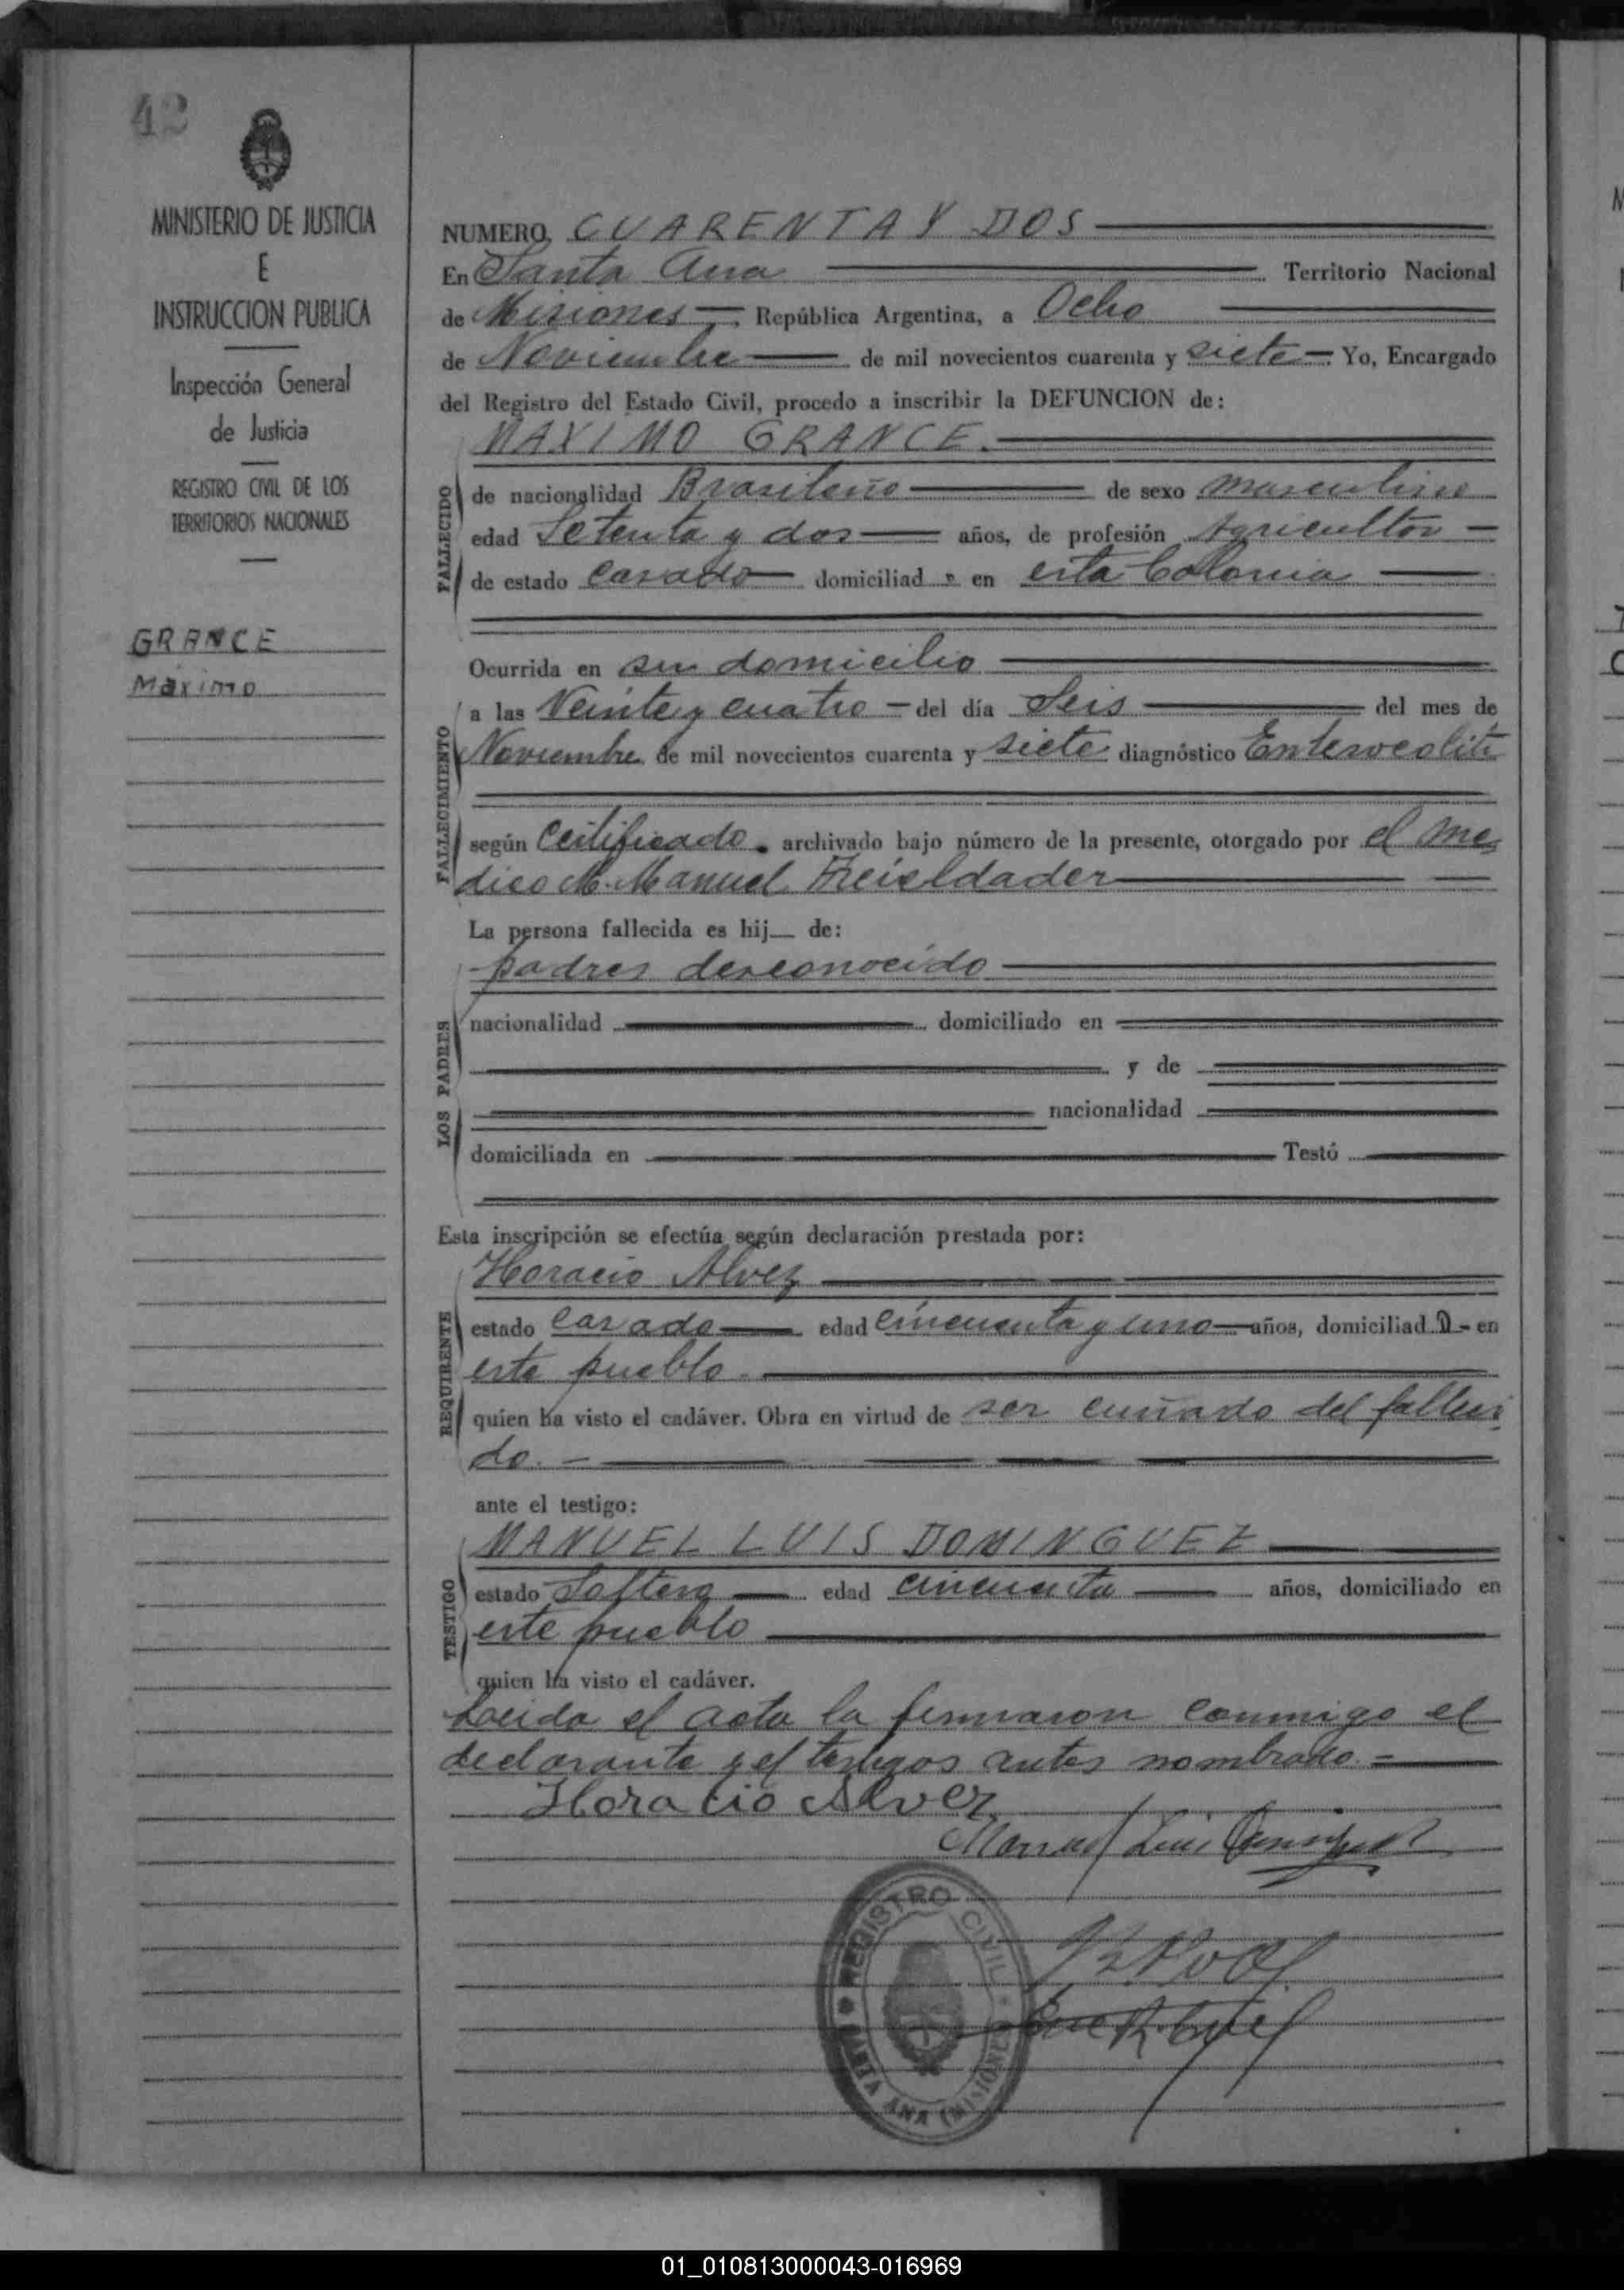 42
MINISTERIO DE JUSTICIA
E
INSTRUCCION PUBLICA
Inspección General
de Justicia
REGISTRO CIVIL DE LOS
TERRITORIOS NACIONALES
GRANCE
Máximo
NUMERO CUARENTA Y DOS
En Santa Ana Territorio Nacional
de Misiones República Argentina, a Ocho
de Noviembre de mil novecientos cuarenta y siete Yo, Encargado
del Registro del Estado Civil, procedo a inscribir la DEFUNCION de:
MAXIMO GRANCE.
FALLECIDO
de nacionalidad Brasileño de sexo masculino
edad Setenta y dos años, de profesión Agricultor
de estado casado domiciliad o en esta Colonia
Ocurrida en su domicilio
FALLECIMIENTO
a las Veinte y cuatro del día Seis del mes de
Noviembre de mil novecientos cuarenta y siete diagnóstico
según Certificado archivado bajo número de la presente, otorgado por el me
dico M. Manuel
La persona fallecida es hij de:
padres desconocido
LOS PADRES
nacionalidad domiciliado en
y de
nacionalidad
domiciliada en Testó
Esta inscripción se efectúa según declaración prestada por:
Horacio Alvez
REQUIRENTE
estado casado edad cincuenta y uno años, domiciliad o en
este pueblo.
quien ha visto el cadáver. Obra en virtud de ser cuñado del falleci
do.
ante el testigo:
MANUEL LUIS DOMINGUEZ
TESTIGO
estado Soltero edad cincuenta años, domiciliado en
este pueblo
quien ha visto el cadáver.
Leida el acta la firmaron conmigo el
declarante y el testigos antes nombrado.
Horacio Alvez
Manuel Luis Dominguez
REGISTRO CIVIL
SANTA ANA (MISIONES)
01_010813000043-016969